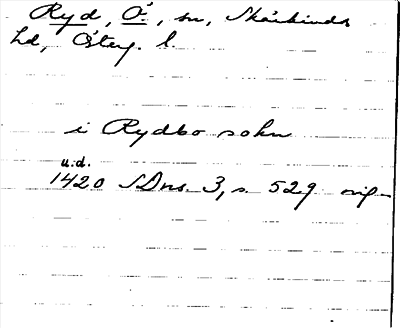 Ryd, Ö., sn, Skärkinds
hd, Österg. l.
i Rydbo sokn
u.d.
1420 SDns 3, s. 529 orig